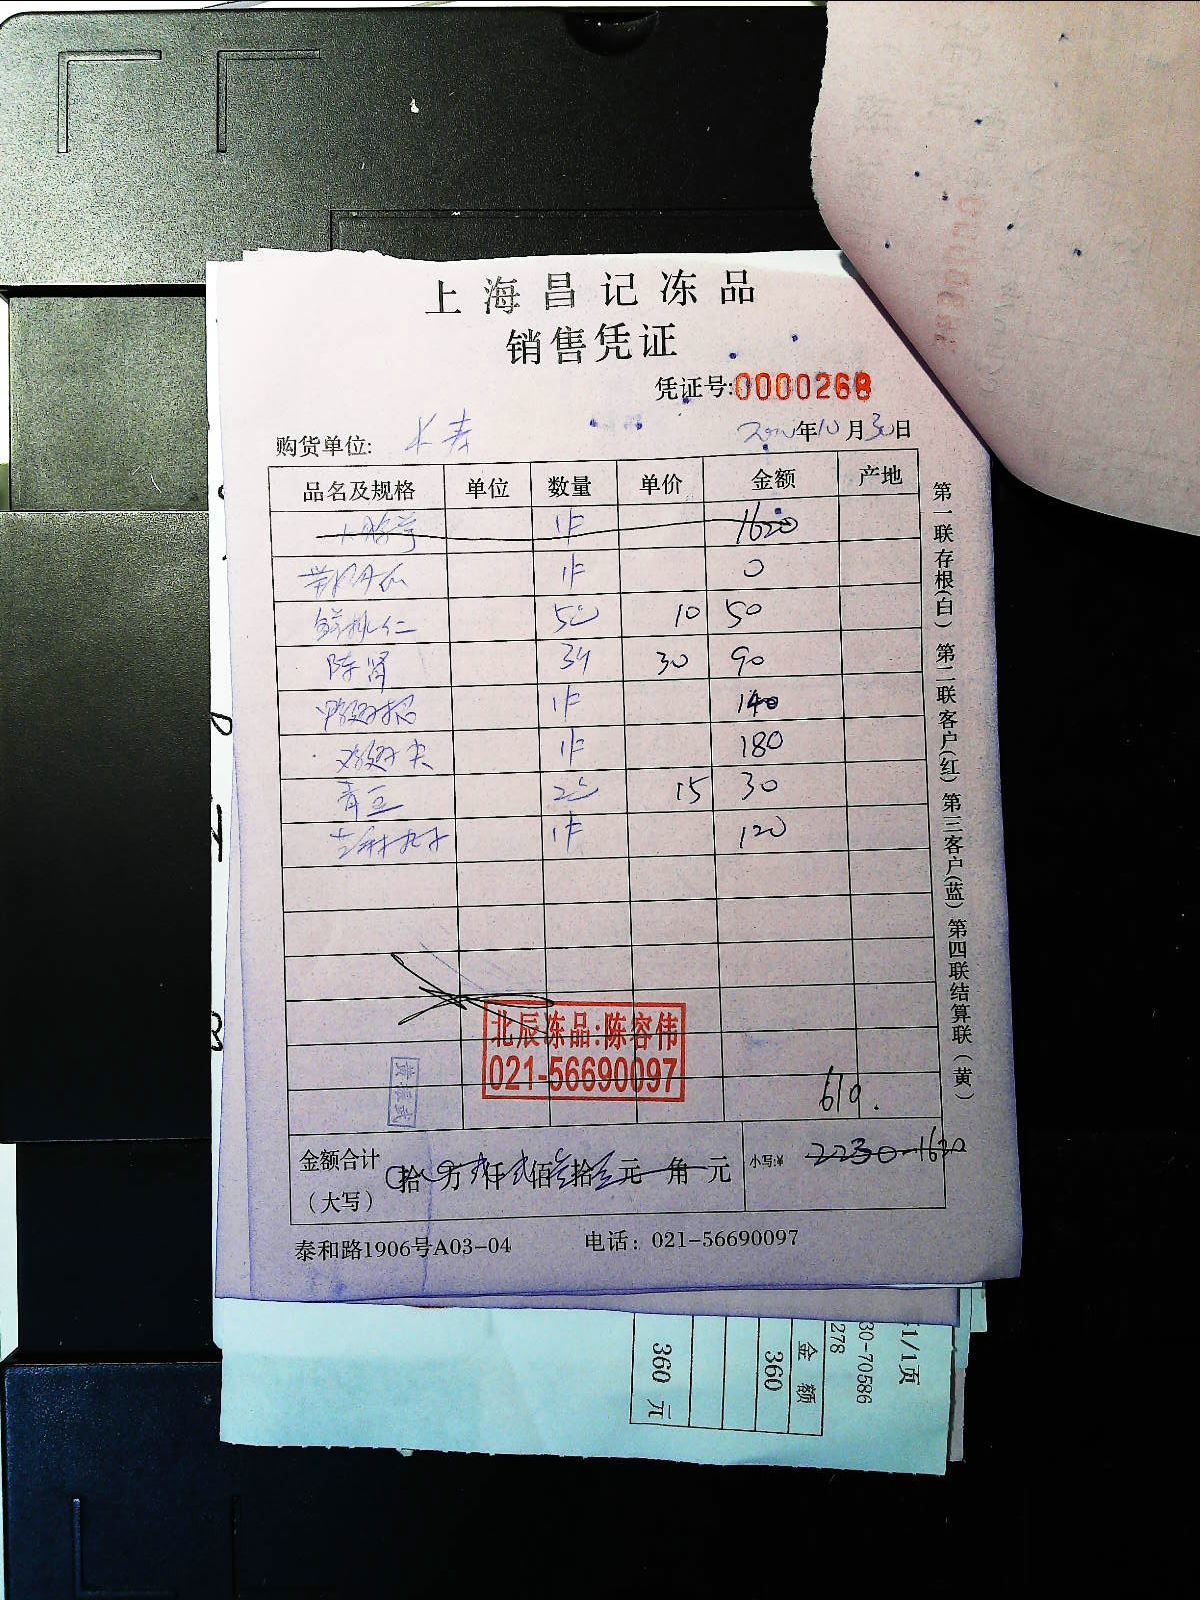 上海昌记冻品
销售凭证
凭证号:0000268
购货单位: 长寿 年10月30日
品名及规格 单位 数量 单价 金额 产地
1件 1620
1件 0
鲜桃仁 5包 10 50
陈肾 3斤 30 90
1件 140
鸡翅尖 1件 180
青豆 2包 15 30
1件 120
北辰冻品:陈容伟
021-56690097
610.
金额合计
(大写)
拾 万 仟 佰 拾 元 角 元
小写:¥ 2230-1620
泰和路1906号A03-04 电话: 021-56690097
第一联存根(白) 第二联客户(红) 第三客户(蓝) 第四联结算联(黄)
1/1页
30-70586
278
金额
360
360 元